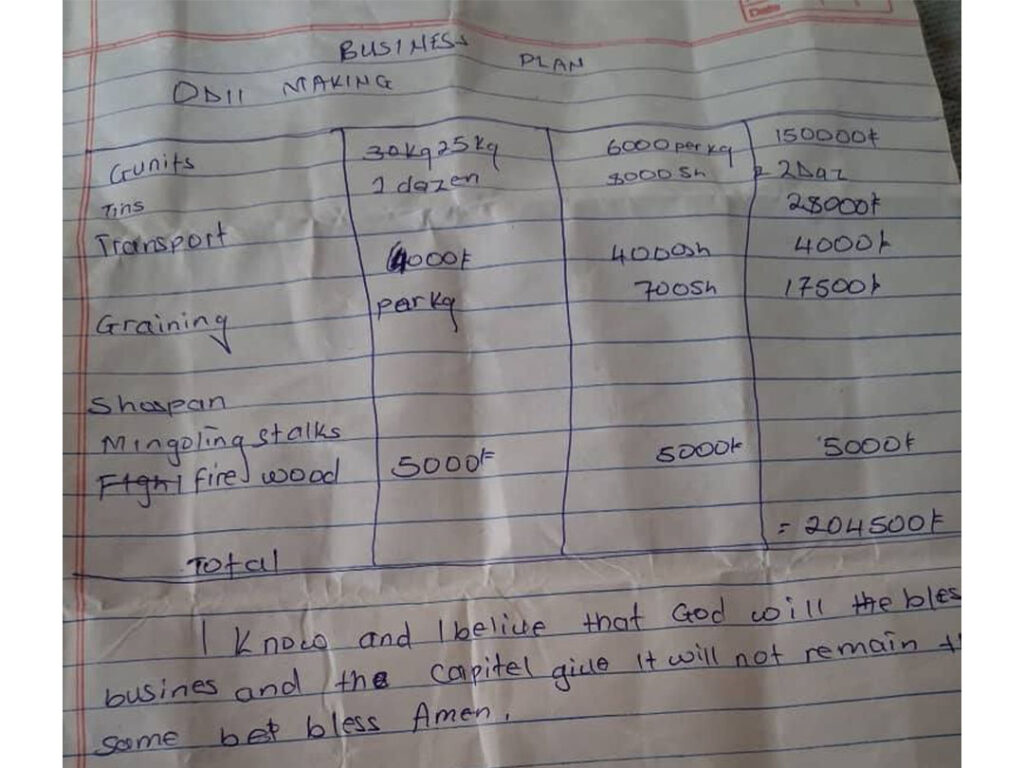 Date
BUSINESS PLAN
ODII MAKING
Gunits 30kg 25kg 6000 per kg 150000/=
Tins 1 dazen 8000 Sh = 2 Daz
28000/=
Transport 4000/= 4000sh 4000/=
Graining per kg 700Sh 17500/=
Shospan
Mingoling stalks
fire wood 5000/= 5000/= 5000/=
Total = 204500/=
I Know and I belive that God will the bles
busines and the capitel give It will not remain
same bet bless Amen.